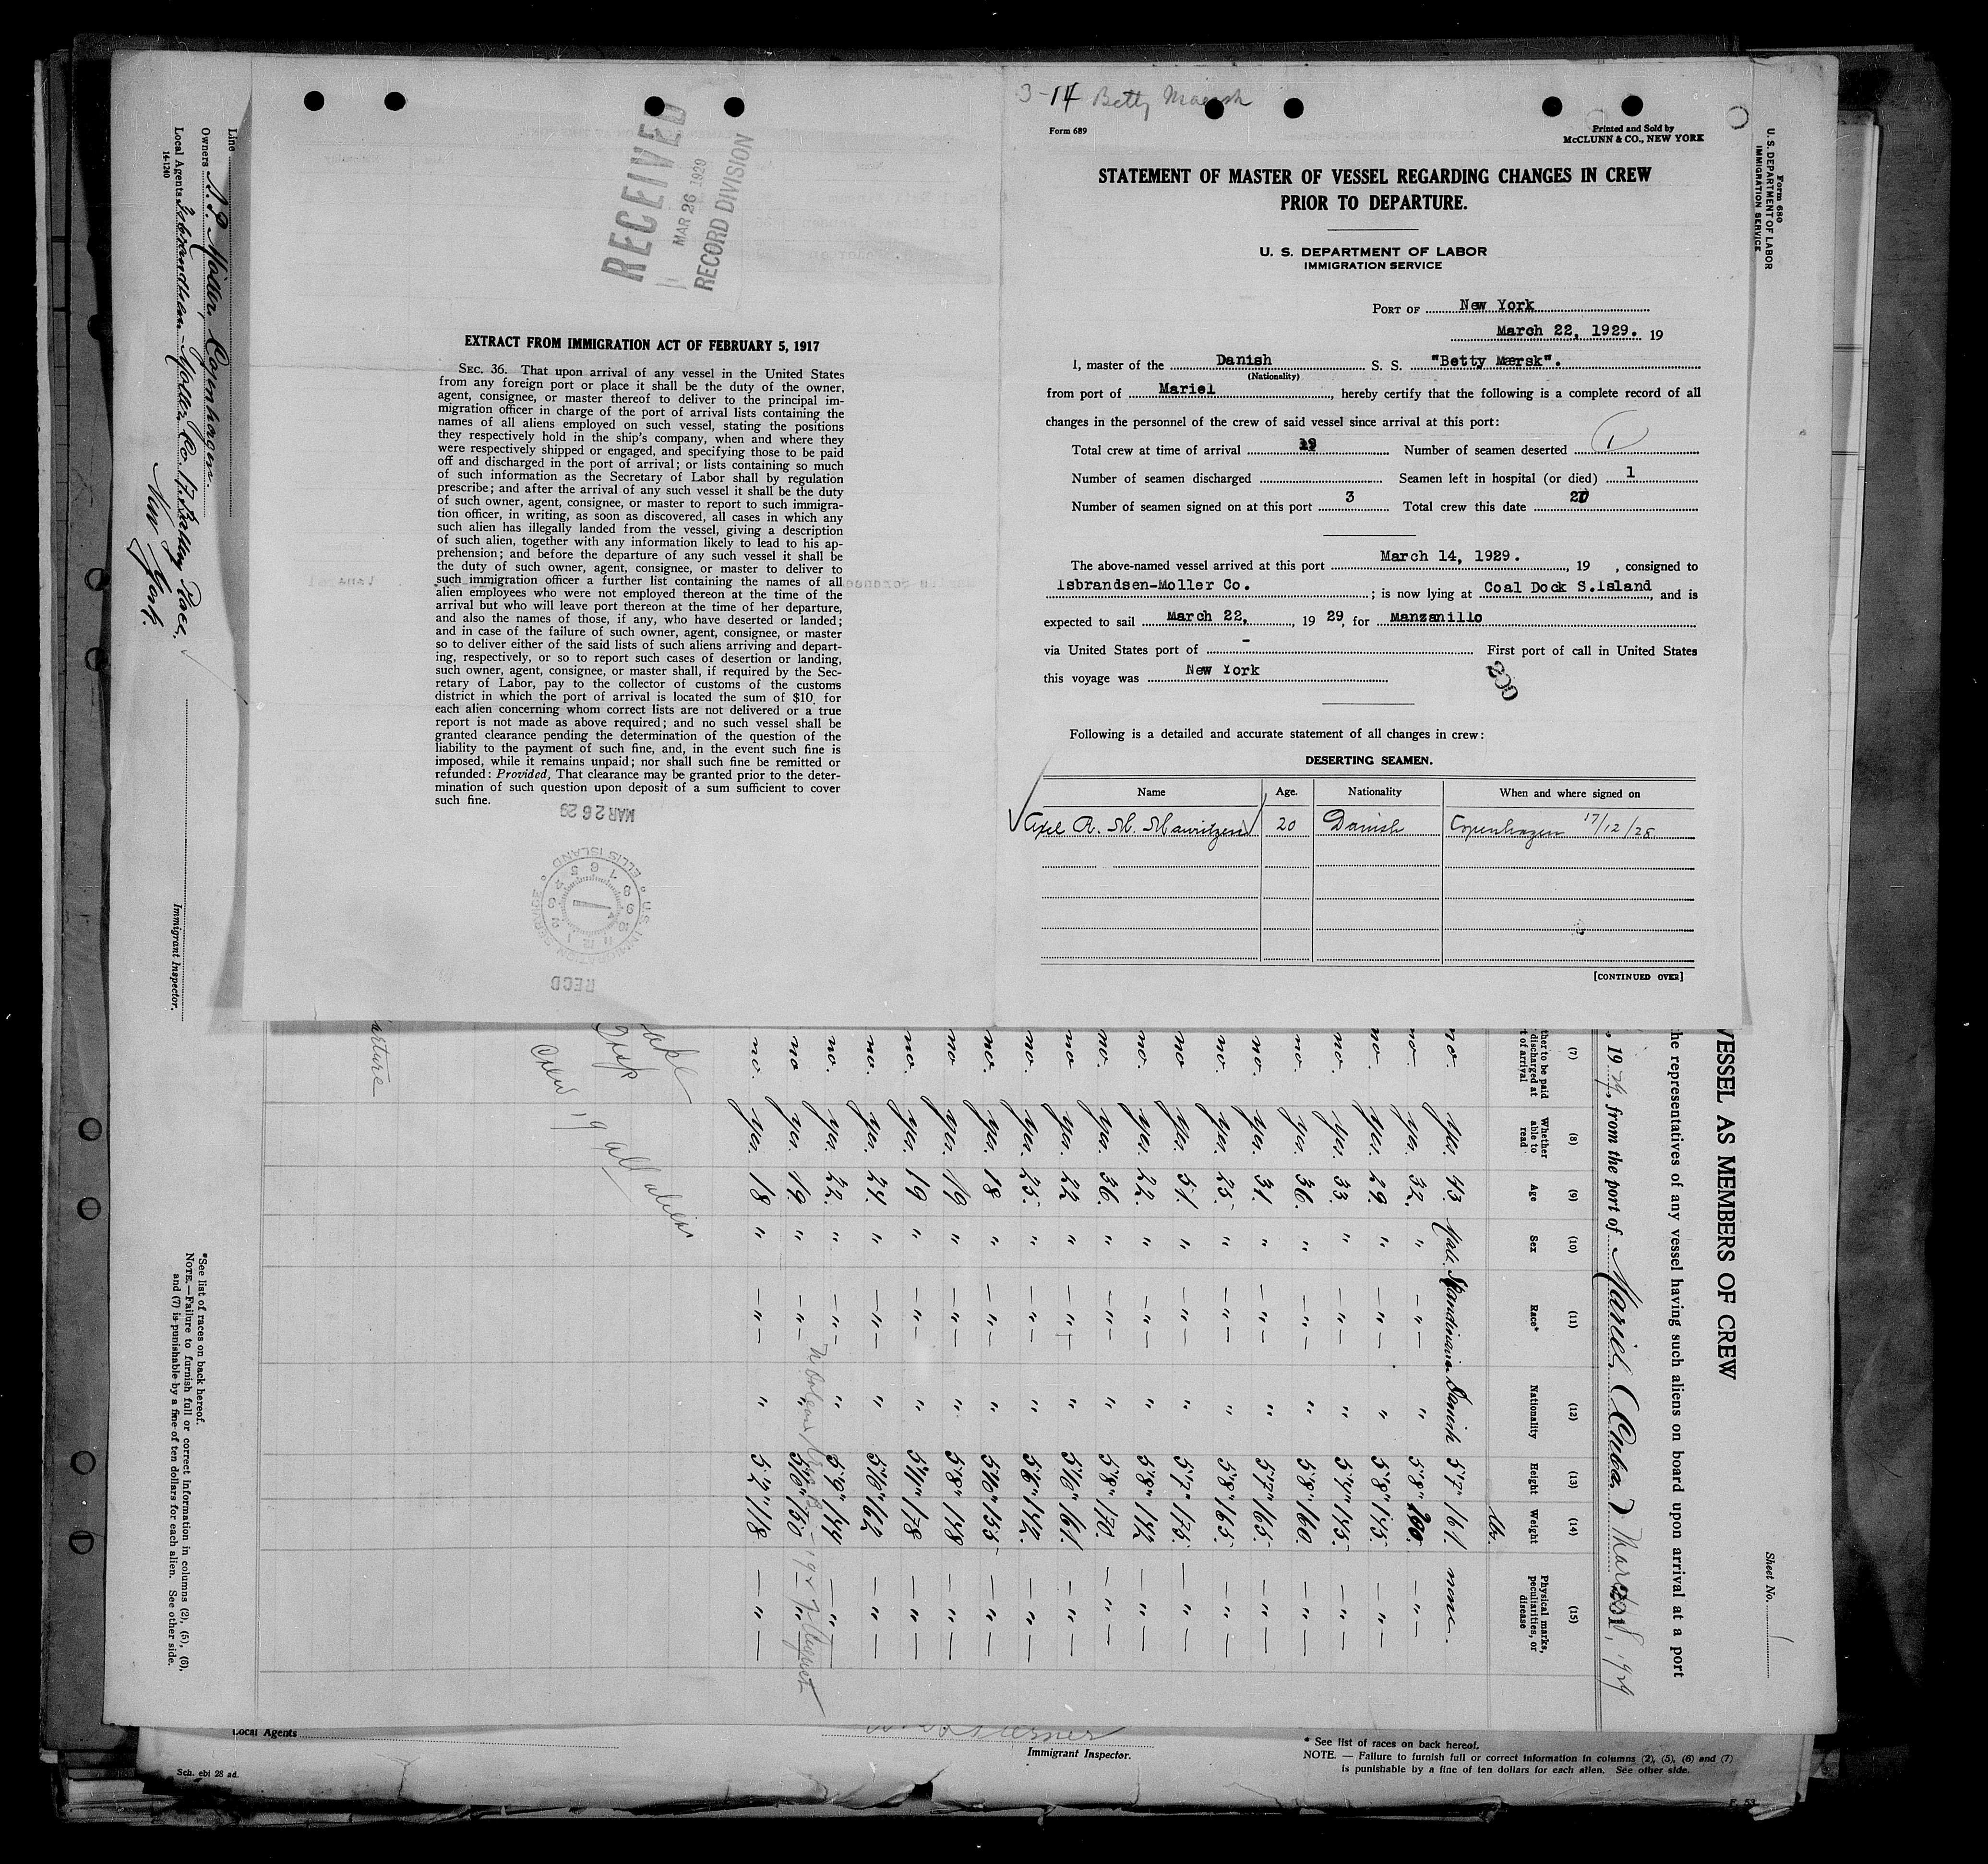 3-14 Betty Maersk
Form 689
Printed and Sold by
McCLUNN & CO., NEW YORK
STATEMENT OF MASTER OF VESSEL REGARDING CHANGES IN CREW
PRIOR TO DEPARTURE.
U. S. DEPARTMENT OF LABOR
IMMIGRATION SERVICE
PORT OF New York
March 22, 1929. 19
I, master of the Danish S. S. "Betty Mærsk".
(Nationality)
from port of Mariel, hereby certify that the following is a complete record of all
changes in the personnel of the crew of said vessel since arrival at this port:
Total crew at time of arrival 19 Number of seamen deserted 1
Number of seamen discharged Seamen left in hospital (or died) 1
Number of seamen signed on at this port 3 Total crew this date
The above-named vessel arrived at this port March 14, 1929. , 19 , consigned to
Isbrandsen-Moller Co. ; is now lying at Coal Dock S.Island, and is
expected to sail March 22, , 19 29, for Manzanillo
via United States port of - First port of call in United States
this voyage was New York
Following is a detailed and accurate statement of all changes in crew:
DESERTING SEAMEN.
Name Age. Nationality When and where signed on
Axel A. M. Mauritzen 20 Danish Copenhagen 17/12/28
[CONTINUED OVER]
RECEIVED
MAR 26 1929
RECORD DIVISION
EXTRACT FROM IMMIGRATION ACT OF FEBRUARY 5, 1917
SEC. 36. That upon arrival of any vessel in the United States
from any foreign port or place it shall be the duty of the owner,
agent, consignee, or master thereof to deliver to the principal im-
migration officer in charge of the port of arrival lists containing the
names of all aliens employed on such vessel, stating the positions
they respectively hold in the ship's company, when and where they
were respectively shipped or engaged, and specifying those to be paid
off and discharged in the port of arrival; or lists containing so much
of such information as the Secretary of Labor shall by regulation
prescribe; and after the arrival of any such vessel it shall be the duty
of such owner, agent, consignee, or master to report to such immigra-
tion officer, in writing, as soon as discovered, all cases in which any
such alien has illegally landed from the vessel, giving a description
of such alien, together with any information likely to lead to his ap-
prehension; and before the departure of any such vessel it shall be
the duty of such owner, agent, consignee, or master to deliver to
such immigration officer a further list containing the names of all
alien employees who were not employed thereon at the time of the
arrival but who will leave port thereon at the time of her departure,
and also the names of those, if any, who have deserted or landed;
and in case of the failure of such owner, agent, consignee, or master
so to deliver either of the said lists of such aliens arriving and depart-
ing, respectively, or so to report such cases of desertion or landing,
such owner, agent, consignee, or master shall, if required by the Sec-
retary of Labor, pay to the collector of customs of the customs
district in which the port of arrival is located the sum of $10 for
each alien concerning whom correct lists are not delivered or a true
report is not made as above required; and no such vessel shall be
granted clearance pending the determination of the question of the
liability to the payment of such fine, and, in the event such fine is
imposed, while it remains unpaid; nor shall such fine be remitted or
refunded: Provided, That clearance may be granted prior to the deter-
mination of such question upon deposit of a sum sufficient to cover
such fine.
MAR 26 29
U.S. IMMIGRATION SERVICE
ELLIS ISLAND
RECD
Form 680
U. S. DEPARTMENT OF LABOR
IMMIGRATION SERVICE
Sheet No. 1
VESSEL AS MEMBERS OF CREW
he representatives of any vessel having such aliens on board upon arrival at a port
, 19 29, from the port of Mariel (Cuba)
(7) (8) (9) (10) (11) (12) (13) (14) (15)
ther to be paid
discharged at
t of arrival
Whether
able to
read
Age
Sex
Race*
Nationality
Height
Weight
Physical marks,
peculiarities, or
disease
lbs.
no. yes. 43. Male. Skandinavian Danish 5'7" 161. none.
no. yes. 32. " — " — " 5'8" — " —
no. yes. 29. " — " — " 5'8" 145. — " —
no. yes. 33. " — " — " 5'4" 145. — " —
no. yes. 36. " — " — " 5'8" 160. — " —
no. yes. 31. " — " — " 5'7" 165. — " —
no. yes. 25. " — " — " 5'8" 165. — " —
no yes. 51. " — " — " 5'7" 175. — " —
no. yes. 22. " — " — " 5'8" 142. — " —
no. yes. 36. " — " — " 5'8" 170. — " —
no yes. 22 " — " — " 5'6" 161. — " —
no. yes. 25. " — " — " 5'6" 142. — " —
no. yes. 18 " — " — " 5'10" 155 — " —
no yes. 19 " — " — " 5'8" 148 — " —
no. yes. 19 " — " — " 5'11" 178 — " —
no. yes. 24. " — " — " 5'6" 162 — " —
no. yes. 22. " — " — " 5'9" 144 — " —
no yes. 19. " — " — " 5'6" 150 — " —
no. yes. 18 " — " — " 5'2" 118. — " —
Crew 19 all aliens
Line
Owners A. P. Moller, Copenhagen.
Local Agents Isbrandtsen-Moller Co. 17 Battery Place,
New York.
14-1240
Immigrant Inspector.
*See list of races on back hereof.
NOTE.—Failure to furnish full or correct information in columns (2), (5), (6),
and (7) is punishable by a fine of ten dollars for each alien. See other side.
Local Agents
Immigrant Inspector.
* See list of races on back hereof.
NOTE. — Failure to furnish full or correct information in columns (2), (5), (6) and (7)
is punishable by a fine of ten dollars for each alien. See other side.
Sch. ebi 28 ad.
F. 53